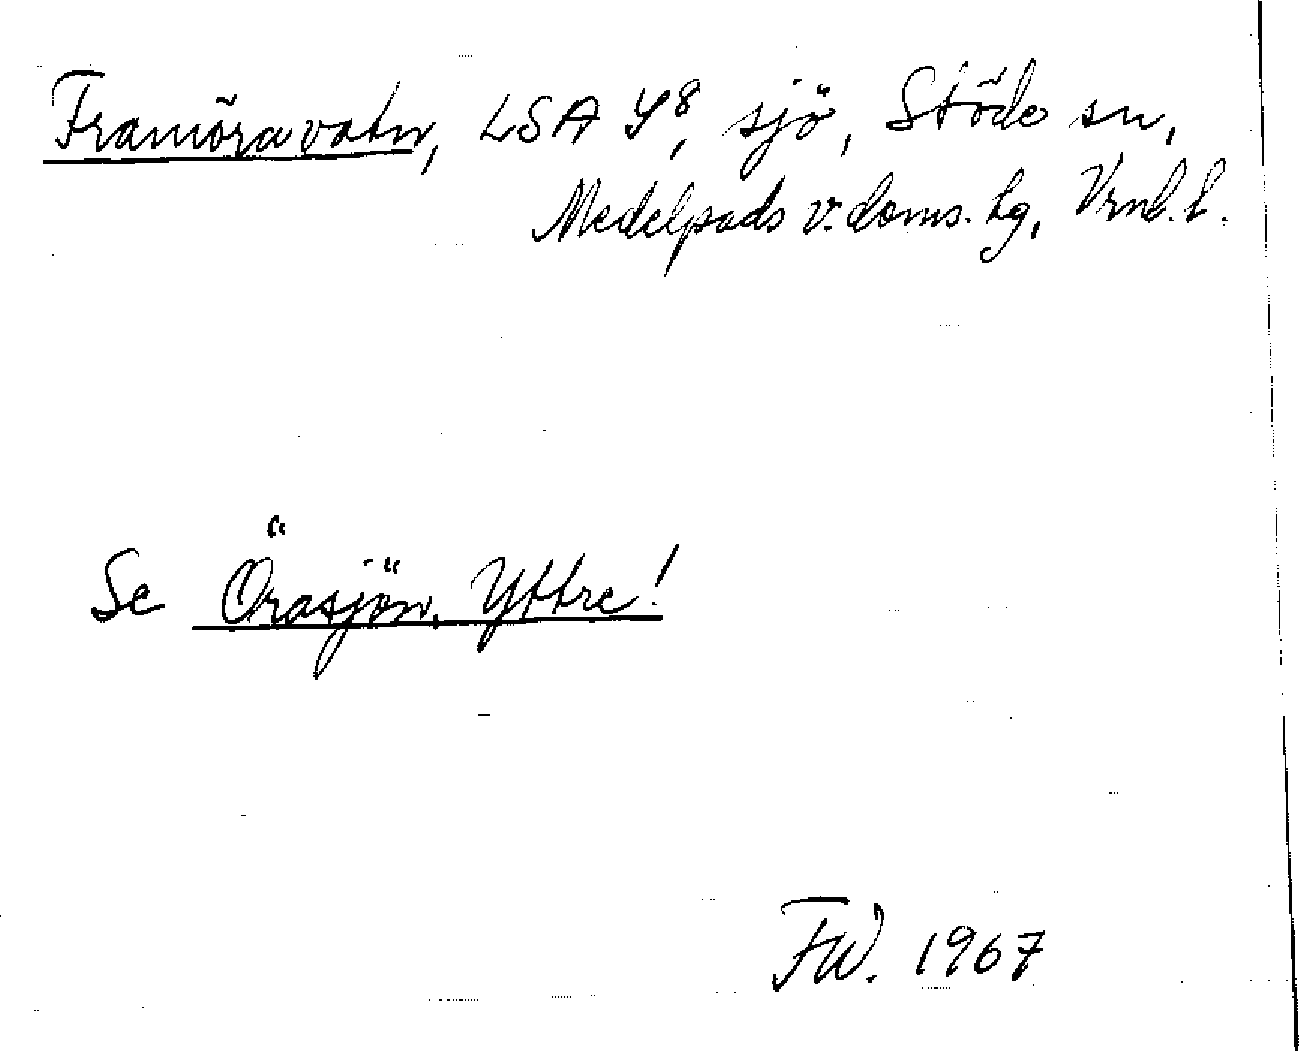 Framöravatn, LSA Y8, sjö, Stöde sn,
Medelpads v. doms. hg, Vrnl. l.
Se Örasjön, Yttre!
FW. 1967